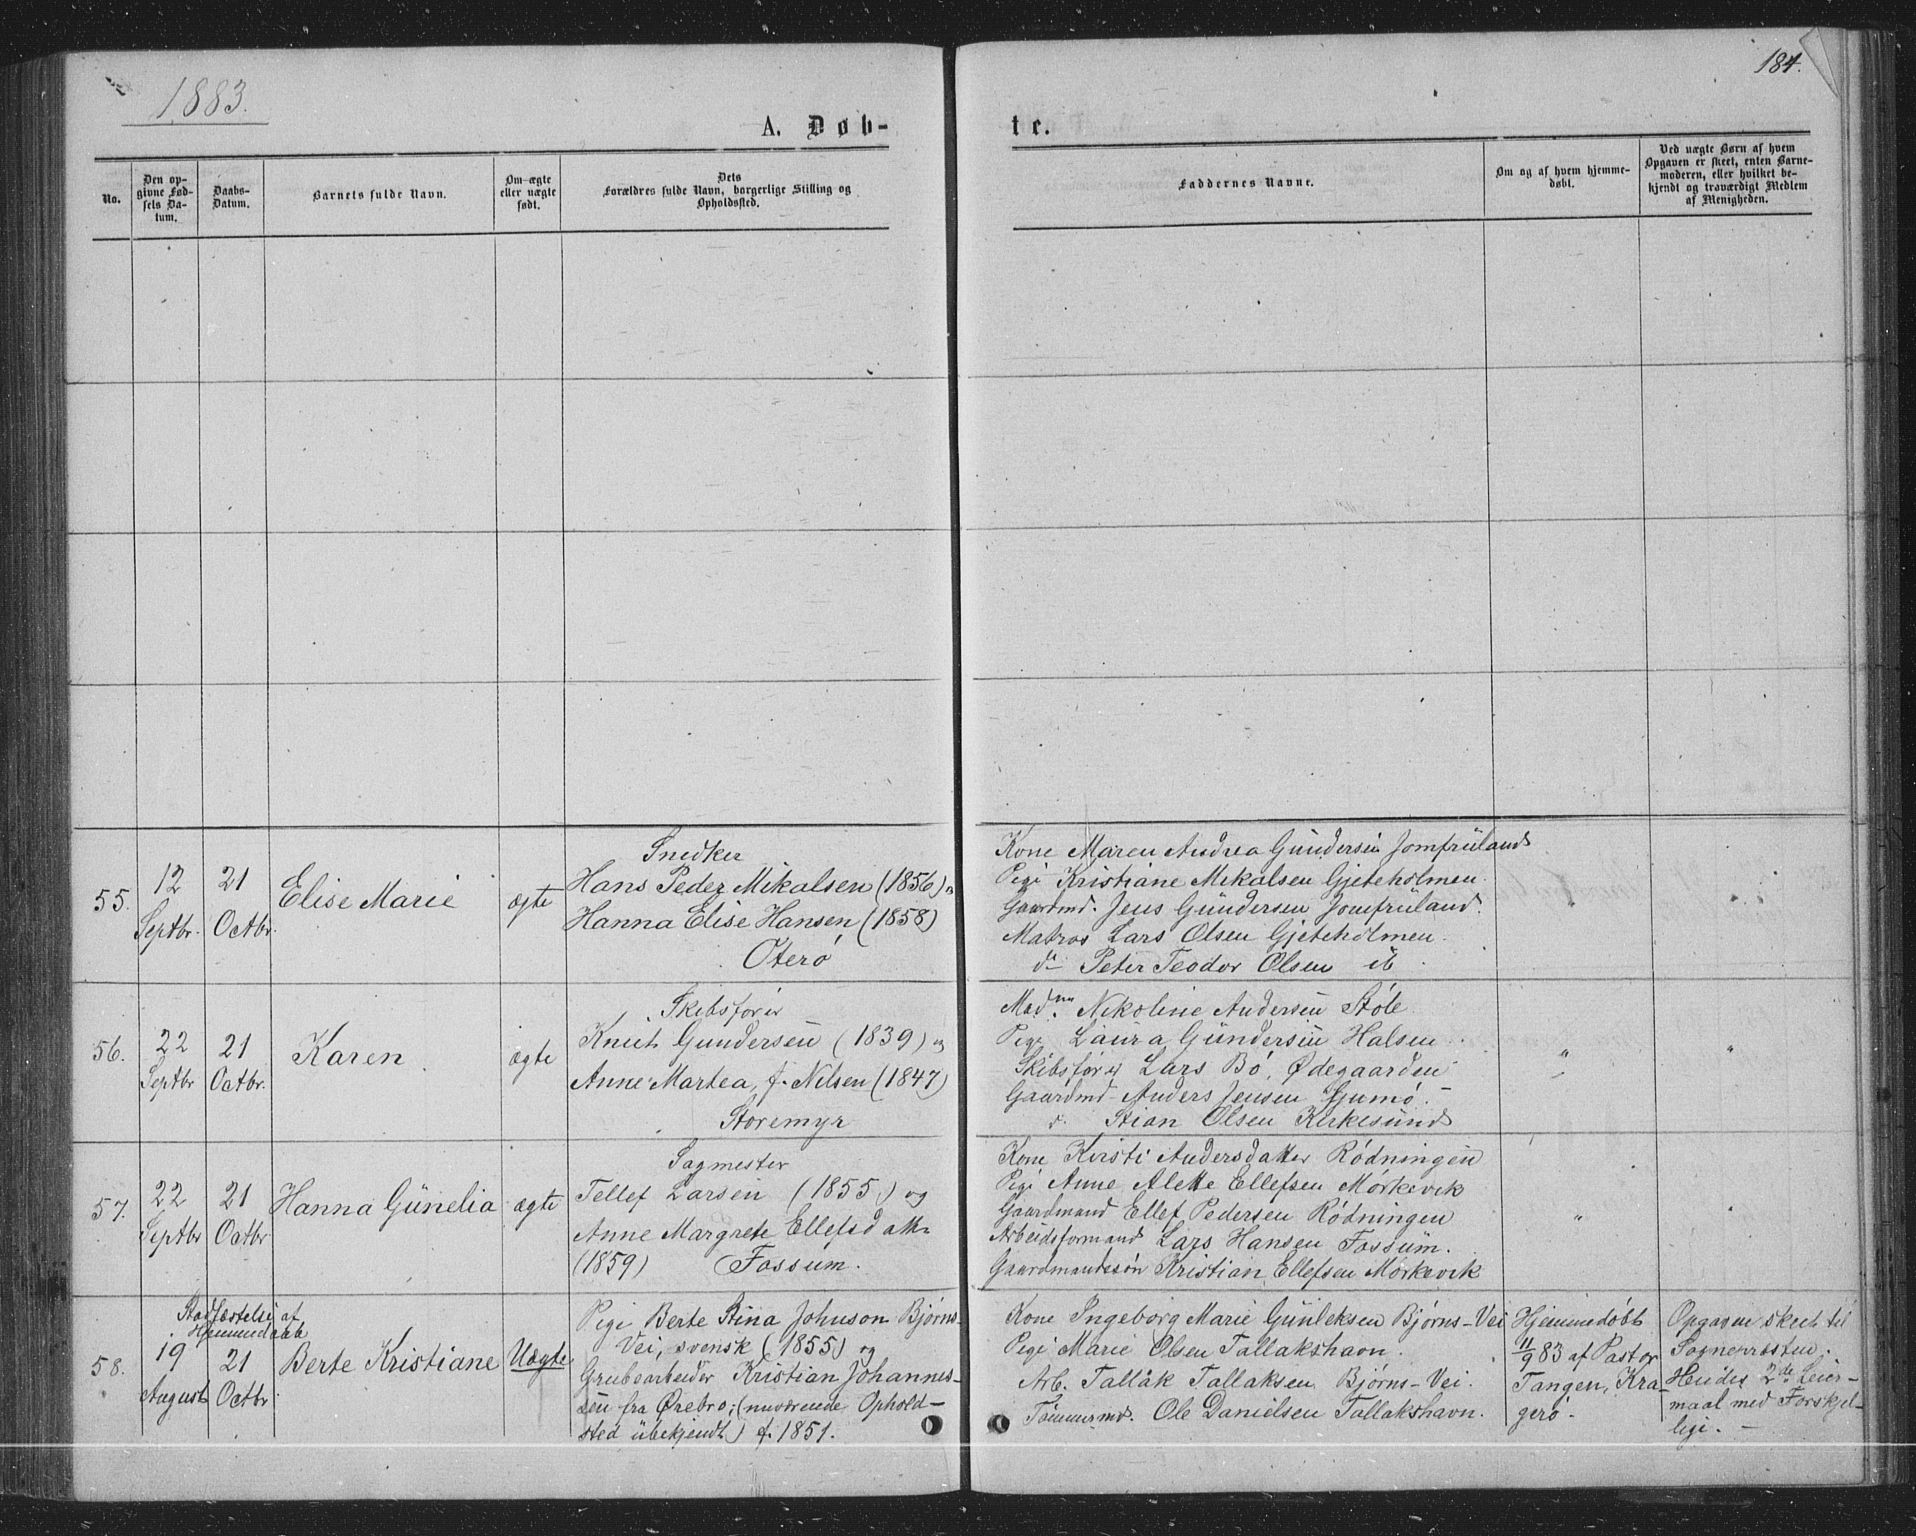 1883.
184.
A. Døb-
te.
No.
Den op-
givne Fød-
sels Da-
tum.
Daabs-
Datum.
Barnets fulde Navn.
Om ægte
eller uægte
født.
Dets
Forældres fulde Navn, borgerlige Stilling og
Opholdssted.
Faddernes Navne.
Om og af hvem hjemme-
døbt.
Ved uægte Børn af hvem
Opgaven er skeet, enten Barne-
moderen, eller hvilket be-
kjendt og troværdigt Medlem
af Menigheden.
55.
12
Septbr.
21
Octbr.
Elise Marie
ægte
Snedker
Hans Peder Mikalsen (1856) og
Hanna Elise Hansen (1858)
Oterø
Kone Maren Andrea Gundersen Jomfruland
Pigi Kristiane Mikalsen Gjeteholmen.
Gaardmd. Jens Gundersen Jomfruland.
Matros Lars Olsen Gjeteholmen.
do Peter Teodor Olsen ib
56.
22
Septbr
21
Octbr.
Karen
ægte
Skibsfører
Knut Gundersen (1839) og
Anne Martea, f. Nilsen (1847)
Storemyr
Madm. Nikoline Andersen Støle
Pige Laura Gundersen Halsen.
Skibsfører Lars Bø, Ødegaarden
Gaardmd Anders Jensen Gumø.
d. Stian Olsen Kirkesund
"
"
57.
22
Septbr
21
Octbr
Hanna Gunelia
ægte
Sagmester
Tellef Larsen (1855) og
Anne Margrete Ellefsdattr
(1859) Fossum.
Kone Kirsti Andersdatter Rødningen
Pigi Anne Alette Ellefsen Mørkevik
Gaardmand Ellef Pedersen Rødningen
Arbeidsformand Lars Hansen Fossum.
Gaardmandssøn Kristian Ellefsen Mørkevik
"
58.
Stadfæstelse af
Hjemmedaab
19
August
21
Octbr.
Berte Kristiane
Uægte
Pige Berte Stina Johnson Bjørns-
Vei, svensk (1855) og
Grubearbeider Kristian Johannes-
sen fra Ørebro; (nuværende Ophold-
sted ubekjendt) f. 1851.
Kone Ingeborg Marie Gunleksen Bjørns-Vei
Pige Marie Olsen Tallakshavn.
Arb. Tallak Tallaksen Bjørns-Vei.
Tømmermd. Ole Danielsen Tallakshavn.
Hjemmedøbt
11/9 83 af Pastor
Tangen, Kra-
gerø.
Opgaven skeet til
Sogneprosten.
Hendes 2de Leier-
maal med Forskjel-
lige.